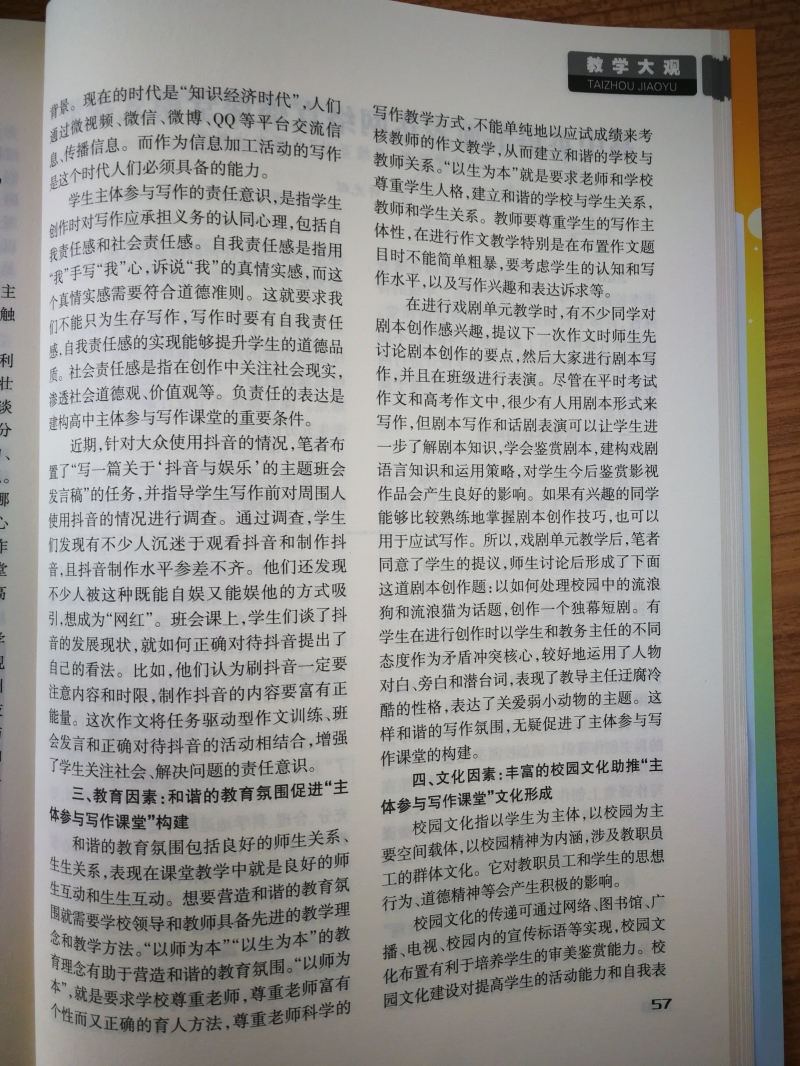 教学大观
TAIZHOU JIAOYU
背景。现在的时代是“知识经济时代”，人们
通过微视频、微信、微博、QQ等平台交流信
息、传播信息。而作为信息加工活动的写作
是这个时代人们必须具备的能力。
学生主体参与写作的责任意识，是指学生
创作时对写作应承担义务的认同心理，包括自
我责任感和社会责任感。自我责任感是指用
“我”手写“我”心，诉说“我”的真情实感，而这
个真情实感需要符合道德准则。这就要求我
们不能只为生存写作，写作时要有自我责任
感，自我责任感的实现能够提升学生的道德品
质。社会责任感是指在创作中关注社会现实，
渗透社会道德观、价值观等。负责任的表达是
建构高中主体参与写作课堂的重要条件。
近期，针对大众使用抖音的情况，笔者布
置了“写一篇关于‘抖音与娱乐’的主题班会
发言稿”的任务，并指导学生写作前对周围人
使用抖音的情况进行调查。通过调查，学生
们发现有不少人沉迷于观看抖音和制作抖
音，且抖音制作水平参差不齐。他们还发现
不少人被这种既能自娱又能娱他的方式吸
引，想成为“网红”。班会课上，学生们谈了抖
音的发展现状，就如何正确对待抖音提出了
自己的看法。比如，他们认为刷抖音一定要
注意内容和时限，制作抖音的内容要富有正
能量。这次作文将任务驱动型作文训练、班
会发言和正确对待抖音的活动相结合，增强
了学生关注社会、解决问题的责任意识。
三、教育因素：和谐的教育氛围促进“主
体参与写作课堂”构建
和谐的教育氛围包括良好的师生关系、
生生关系，表现在课堂教学中就是良好的师
生互动和生生互动。想要营造和谐的教育氛
围就需要学校领导和教师具备先进的教学理
念和教学方法。“以师为本”“以生为本”的教
育理念有助于营造和谐的教育氛围。“以师为
本”，就是要求学校尊重老师，尊重老师富有
个性而又正确的育人方法，尊重老师科学的
写作教学方式，不能单纯地以应试成绩来考
核教师的作文教学，从而建立和谐的学校与
教师关系。“以生为本”就是要求老师和学校
尊重学生人格，建立和谐的学校与学生关系，
教师和学生关系。教师要尊重学生的写作主
体性，在进行作文教学特别是在布置作文题
目时不能简单粗暴，要考虑学生的认知和写
作水平，以及写作兴趣和表达诉求等。
在进行戏剧单元教学时，有不少同学对
剧本创作感兴趣，提议下一次作文时师生先
讨论剧本创作的要点，然后大家进行剧本写
作，并且在班级进行表演。尽管在平时考试
作文和高考作文中，很少有人用剧本形式来
写作，但剧本写作和话剧表演可以让学生进
一步了解剧本知识，学会鉴赏剧本，建构戏剧
语言知识和运用策略，对学生今后鉴赏影视
作品会产生良好的影响。如果有兴趣的同学
能够比较熟练地掌握剧本创作技巧，也可以
用于应试写作。所以，戏剧单元教学后，笔者
同意了学生的提议，师生讨论后形成了下面
这道剧本创作题：以如何处理校园中的流浪
狗和流浪猫为话题，创作一个独幕短剧。有
学生在进行创作时以学生和教务主任的不同
态度作为矛盾冲突核心，较好地运用了人物
对白、旁白和潜台词，表现了教导主任迂腐冷
酷的性格，表达了关爱弱小动物的主题。这
样和谐的写作氛围，无疑促进了主体参与写
作课堂的构建。
四、文化因素：丰富的校园文化助推“主
体参与写作课堂”文化形成
校园文化指以学生为主体，以校园为主
要空间载体，以校园精神为内涵，涉及教职员
工的群体文化。它对教职员工和学生的思想
行为、道德精神等会产生积极的影响。
校园文化的传递可通过网络、图书馆、广
播、电视、校园内的宣传标语等实现，校园文
化布置有利于培养学生的审美鉴赏能力。校
园文化建设对提高学生的活动能力和自我表
57